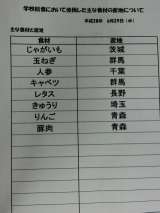 学校給食において使用した主な食材の産地について
平成28年 6月29日（水）
主な食材と産地
食材 産地
じゃがいも 茨城
玉ねぎ 群馬
人参 千葉
キャベツ 群馬
レタス 長野
きゅうり 埼玉
りんご 青森
豚肉 青森